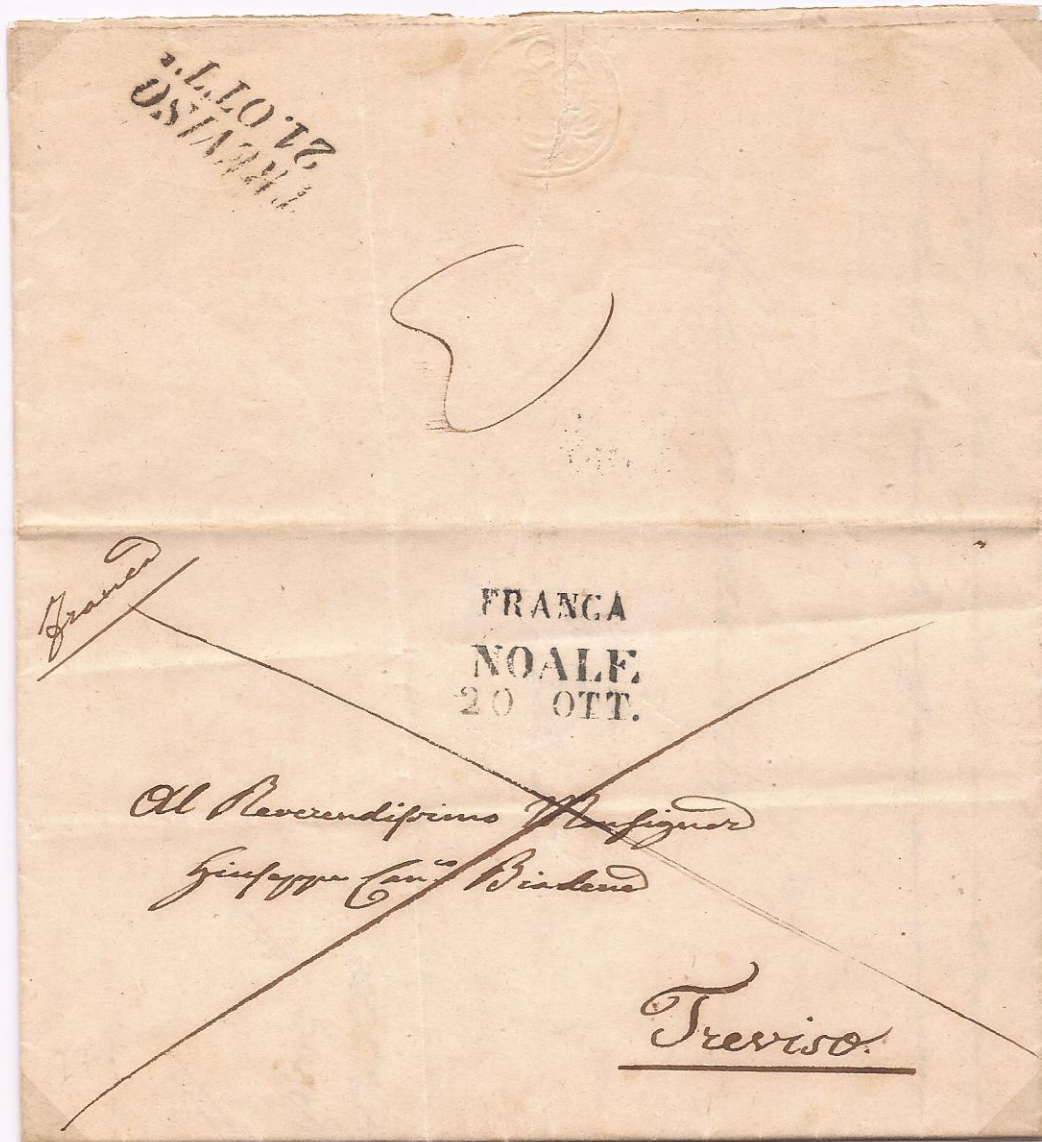 TREVISO
21. OTT.e
Franca
FRANCA
NOALE
20 OTT.
Al Reverendissimo Monsignor
Giuseppe Can.co Biadene
Treviso.